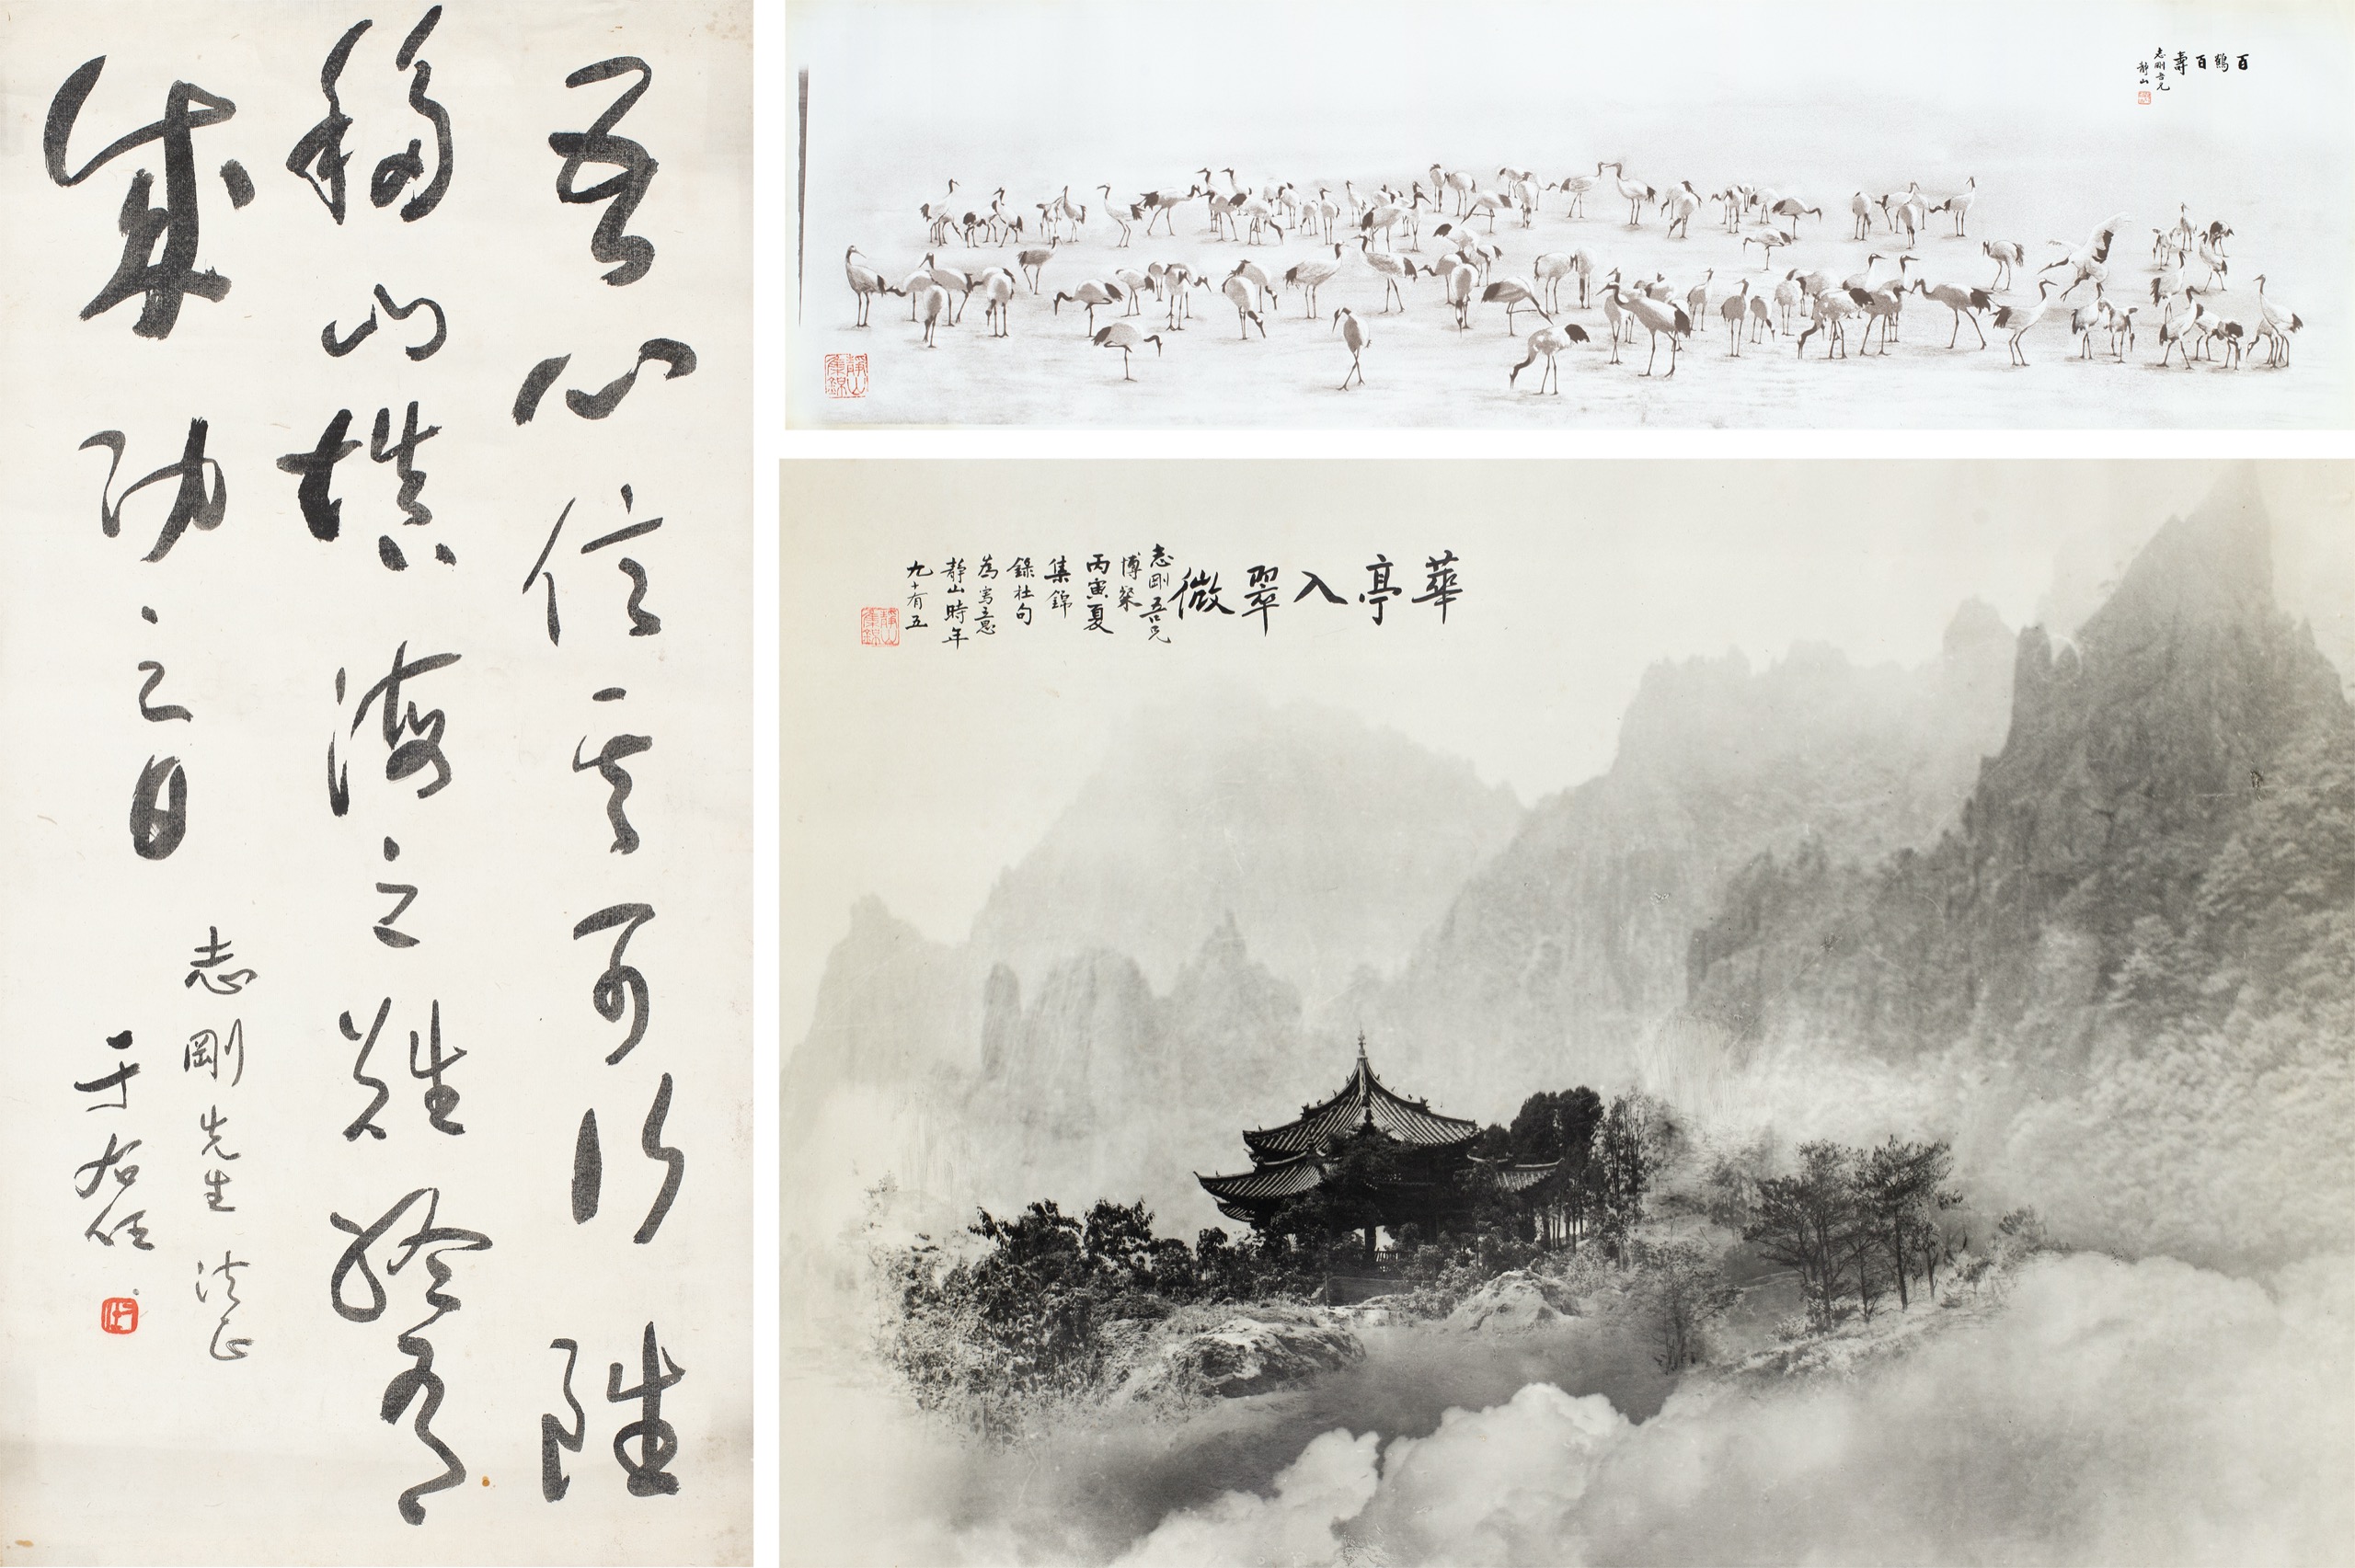 吾心信其可行雖
移山填海之難終有
成功之日
志剛先生法正
于右任
百鶴百壽
志剛吾兄
靜山
靜山集錦
華亭入翠微
志剛吾兄
博粲
丙寅夏
集錦
錄杜句
為寫意
靜山時年
九十有五
靜山集錦